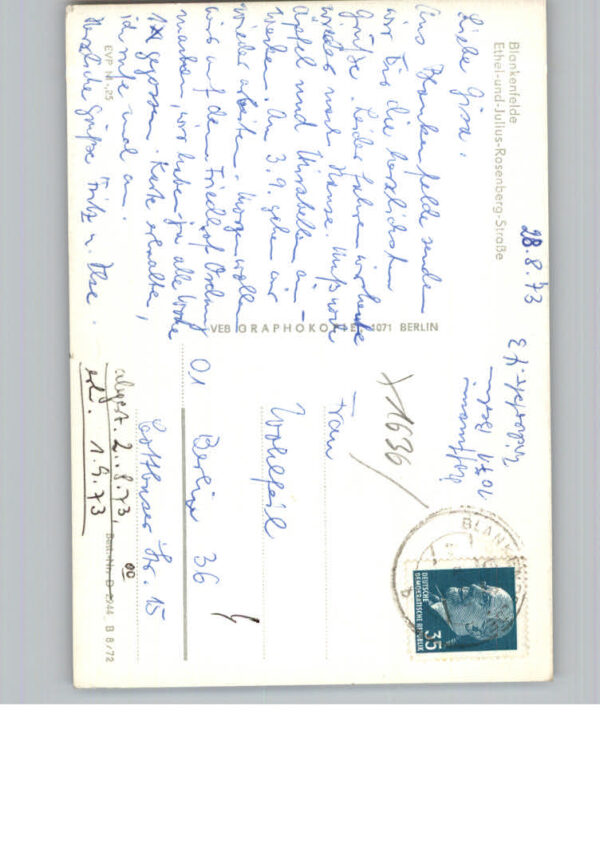 Blankenfelde
Ethel-und-Julius-Rosenberg-Straße
28.8.73
Liebe Gisa.
Aus Blankenfelde senden
wir Dir die herzlichsten
Grüße. Leider fahren wir heute
wieder nach Hause. Muß noch
Äpfel und Mirabellen ein-
wecken. Am 3.9. gehen wir
wieder arbeiten. Morgen wollen
wir auf dem Friedhof Ordnung
machen, wir haben ja alle Woche
1x gegossen. Karte erhalten,
ich rufe mal an.
Herzliche Grüße Fritz u. Ilse.
EVP M -,25
VEB GRAPHOKOPIE, 1071 BERLIN
1071 Berlin
X 1636
Frau
Wohlfeil
01 Berlin 36
Cottbuser Str. 15
abgest. 2. 8.73,
erh. 1.9.73
Best.-Nr. D 2944 B 8/72
BLANK
DEUTSCHE
DEMOKRATISCHE REPUBLIK
35